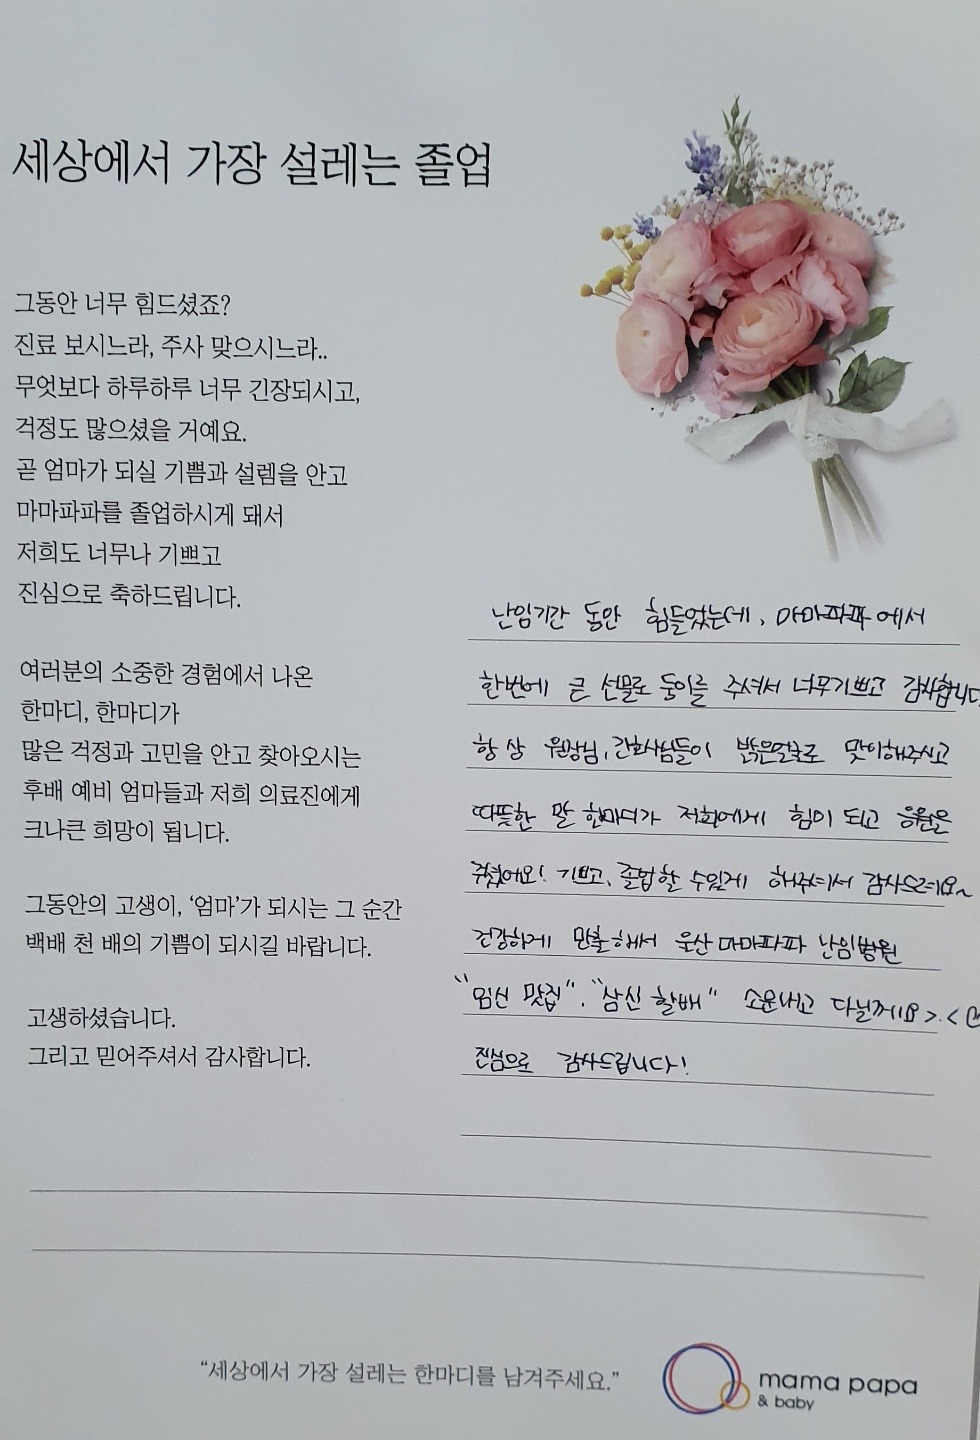 세상에서 가장 설레는 졸업
그동안 너무 힘드셨죠?
진료 보시느라, 주사 맞으시느라..
무엇보다 하루하루 너무 긴장되시고,
걱정도 많으셨을 거예요.
곧 엄마가 되실 기쁨과 설렘을 안고
마마파파를 졸업하시게 돼서
저희도 너무나 기쁘고
진심으로 축하드립니다.
여러분의 소중한 경험에서 나온
한마디, 한마디가
많은 걱정과 고민을 안고 찾아오시는
후배 예비 엄마들과 저희 의료진에게
크나큰 희망이 됩니다.
그동안의 고생이, ‘엄마’가 되시는 그 순간
백배 천 배의 기쁨이 되시길 바랍니다.
고생하셨습니다.
그리고 믿어주셔서 감사합니다.
난임기간 동안 힘들었는데, 마마파파에서
한번에 큰 선물로 둥이를 주셔서 너무기쁘고 감사합니다
항상 원장님, 간호사님들이 밝은얼굴로 맞이해주시고
따뜻한 말 한마디가 저희에게 힘이 되고 응원을
주셨어요! 기쁘고, 졸업할 수있게 해주셔서 감사드려요~
건강하게 만출해서 울산마마파파 난임병원
"임신 맛집", "삼신 할배" 소문내고 다닐께요 >.<
진심으로 감사드립니다!
“세상에서 가장 설레는 한마디를 남겨주세요.”
mama papa
& baby